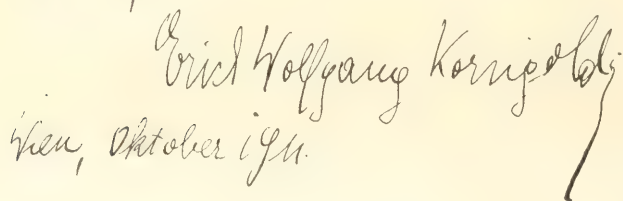 Erich Wolfgang Korngold
Wien, Oktober 1911.